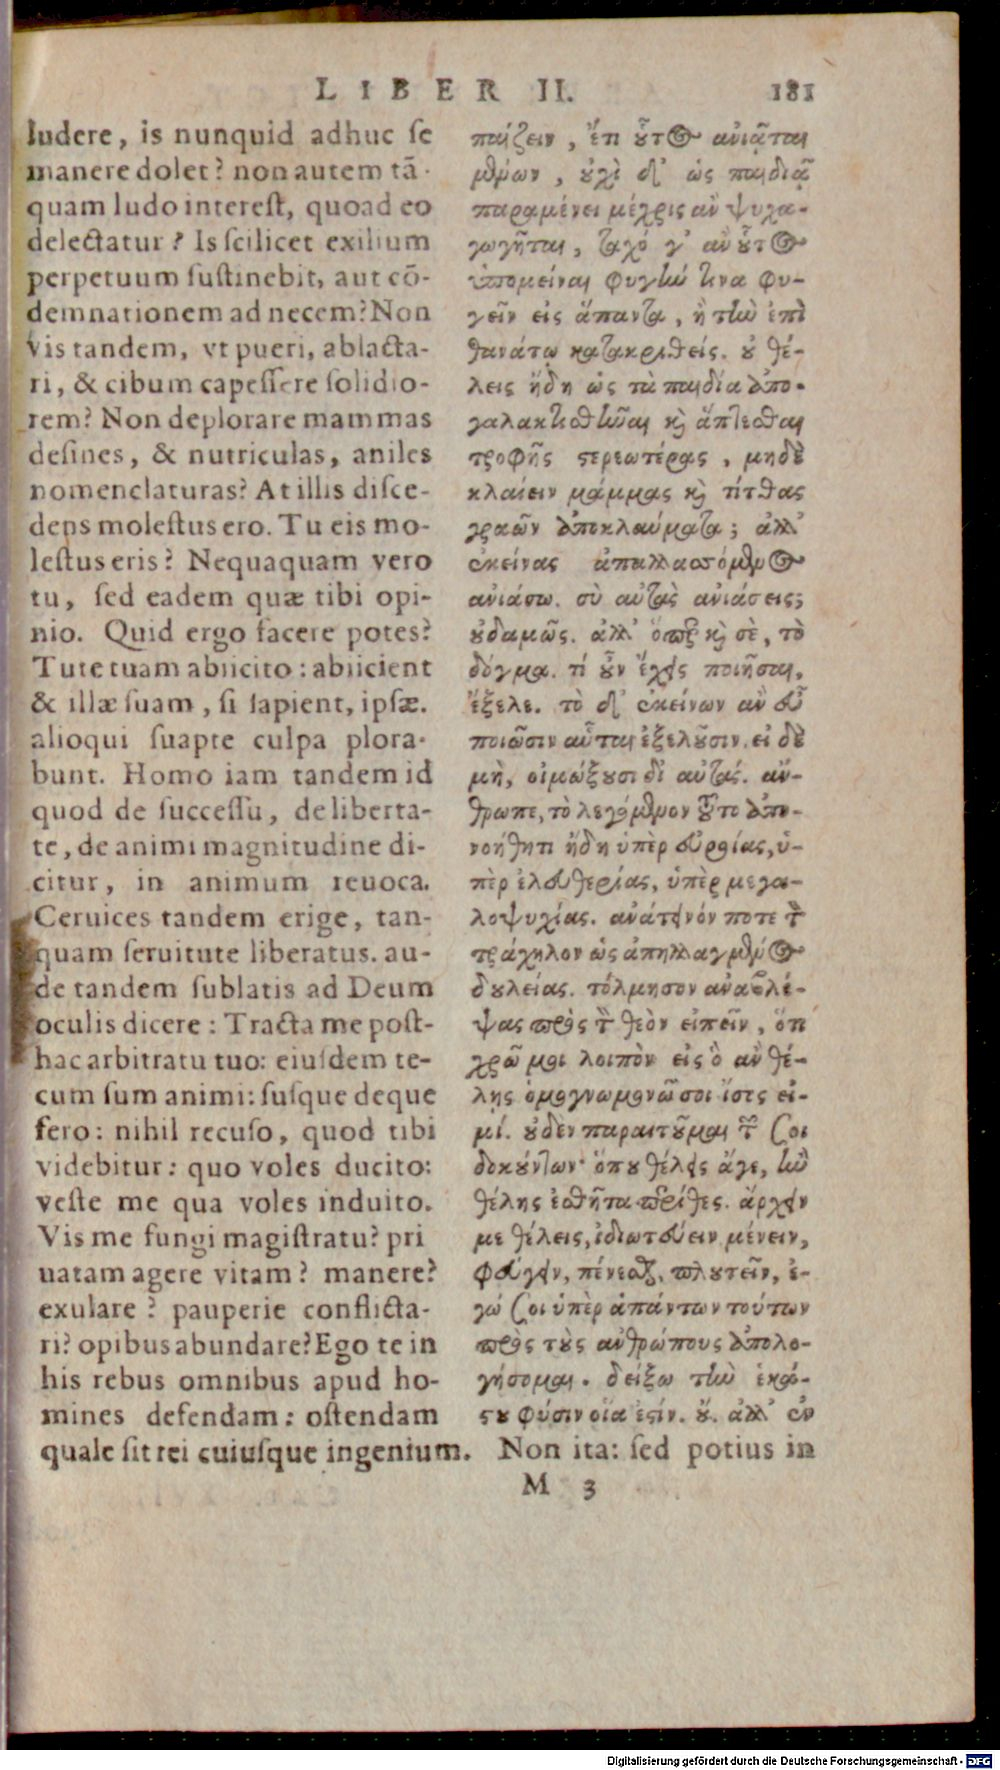 LIBER II. 181
ludere, is nunquid adhuc se
manere dolet? non autem tã-
quam ludo interest, quoad eo
delectatur? Is scilicet exilium
perpetuum sustinebit, aut cõ-
demnationem ad necem? Non
vis tandem, vt pueri, ablacta-
ri, & cibum capessere solidio-
rem? Non deplorare mammas
desines, & nutriculas, aniles
nomenclaturas? At illis disce-
dens molestus ero. Tu eis mo-
lestus eris? Nequaquam vero
tu, sed eadem quæ tibi opi-
nio. Quid ergo facere potes?
Tute tuam abiicito: abiicient
& illæ suam, si sapient, ipsæ.
alioqui suapte culpa plora-
bunt. Homo iam tandem id
quod de successu, de liberta-
te, de animi magnitudine di-
citur, in animum reuoca.
Ceruices tandem erige, tan-
quam seruitute liberatus. au-
de tandem sublatis ad Deum
oculis dicere: Tracta me post-
hac arbitratu tuo: eiusdem te-
cum sum animi: susque deque
fero: nihil recuso, quod tibi
videbitur: quo voles ducito:
veste me qua voles induito.
Vis me fungi magistratu? pri
uatam agere vitam? manere?
exulare? pauperie conflicta-
ri? opibus abundare? Ego te in
his rebus omnibus apud ho-
mines defendam: ostendam
quale sit rei cuiusque ingenium.
παίζειν, ἔτι οὗτος ἀνιᾶται
μένων, οὐχὶ δ' ὡς παιδιᾷ
παραμένει μέχρις ἂν ψυχα-
γωγῆται, ταχύ γ' ἂν οὗτος
ὑπομείναι φυγήν τινα φυ-
γεῖν εἰς ἅπαντα, ἢ τὴν ἐπὶ
θανάτῳ κατακριθείς. οὐ θέ-
λεις ἤδη ὡς τὰ παιδία ἀπο-
γαλακτισθῆναι καὶ ἅπτεσθαι
τροφῆς στερεωτέρας, μηδὲ
κλαίειν μάμμας καὶ τίτθας
γραῶν ἀποκλαύματα; ἀλλ'
ἐκείνας ἀπαλλασσόμενος
ἀνιάσω. σὺ αὐτὰς ἀνιάσεις;
οὐδαμῶς. ἀλλ' ὅπερ καὶ σὲ, τὸ
δόγμα. τί οὖν ἔχεις ποιῆσαι,
ἔξελε. τὸ δ' ἐκείνων ἂν εὖ
ποιῶσιν αὗται ἐξελοῦσιν. εἰ δὲ
μὴ, οἰμώξουσι δι' αὐτάς. ἄν-
θρωπε, τὸ λεγόμενον τοῦτο ἀπο-
νοήθητι ἤδη ὑπὲρ εὐροίας, ὑ-
πὲρ ἐλευθερίας, ὑπὲρ μεγα-
λοψυχίας. ἀνάτεινόν ποτε τὸν
τράχηλον ὡς ἀπηλλαγμένος
δουλείας. τόλμησον ἀναβλέ-
ψας πρὸς τὸν θεὸν εἰπεῖν, ὅτι
χρῶ μοι λοιπὸν εἰς ὃ ἂν θέ-
λῃς ὁμογνωμονῶ σοι ἴσος εἰ-
μί. οὐδὲν παραιτοῦμαι τῶν σοι
δοκούντων· ὅπου θέλεις ἄγε, ἣν
θέλῃς ἐσθῆτα περίθες. ἄρχειν
με θέλεις, ἰδιωτεύειν μένειν,
φεύγειν, πένεσθαι, πλουτεῖν, ἐ-
γώ σοι ὑπὲρ ἁπάντων τούτων
πρὸς τοὺς ἀνθρώπους ἀπολο-
γήσομαι. δείξω τὴν ἑκά-
στου φύσιν οἵα ἐστίν. οὔ. ἀλλ' ἐν
Non ita: sed potius in
M 3
Digitalisierung gefördert durch die Deutsche Forschungsgemeinschaft - DFG